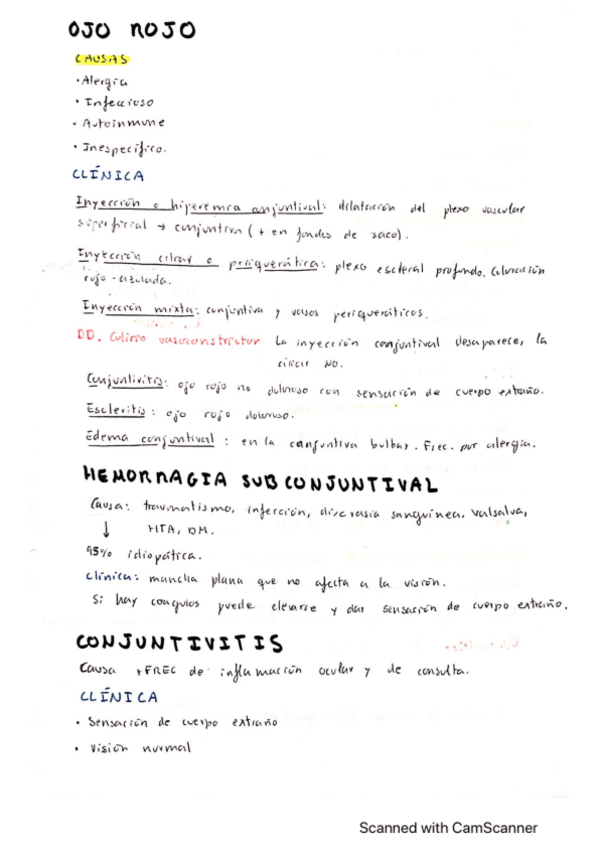 OJO ROJO
CAUSAS
• Alergia
• Infeccioso
• Autoinmune
• Inespecífico.
CLÍNICA
Inyección o hiperemia conjuntival: dilatación del plexo vascular
superficial → conjuntiva (+ en fondos de saco).
Inyección ciliar o periquerática: plexo escleral profundo. Coloración
rojo-azulada.
Inyección mixta: conjuntiva y vasos periqueráticos.
DD. Colirio vasoconstrictor La inyección conjuntival desaparece, la
ciliar NO.
Conjuntivitis: ojo rojo no doloroso con sensación de cuerpo extraño.
Escleritis: ojo rojo doloroso.
Edema conjuntival: en la conjuntiva bulbar. Frec. por alergia.
HEMORRAGIA SUBCONJUNTIVAL
Causa: traumatismo, infección, discrasia sanguínea, Valsalva,
↓ HTA, DM.
95% idiopática.
Clínica: mancha plana que no afecta a la visión.
Si hay coágulos puede elevarse y dar sensación de cuerpo extraño.
CONJUNTIVITIS
Causa + FREC de inflamación ocular y de consulta.
CLÍNICA
• Sensación de cuerpo extraño
• Visión normal
Scanned with CamScanner